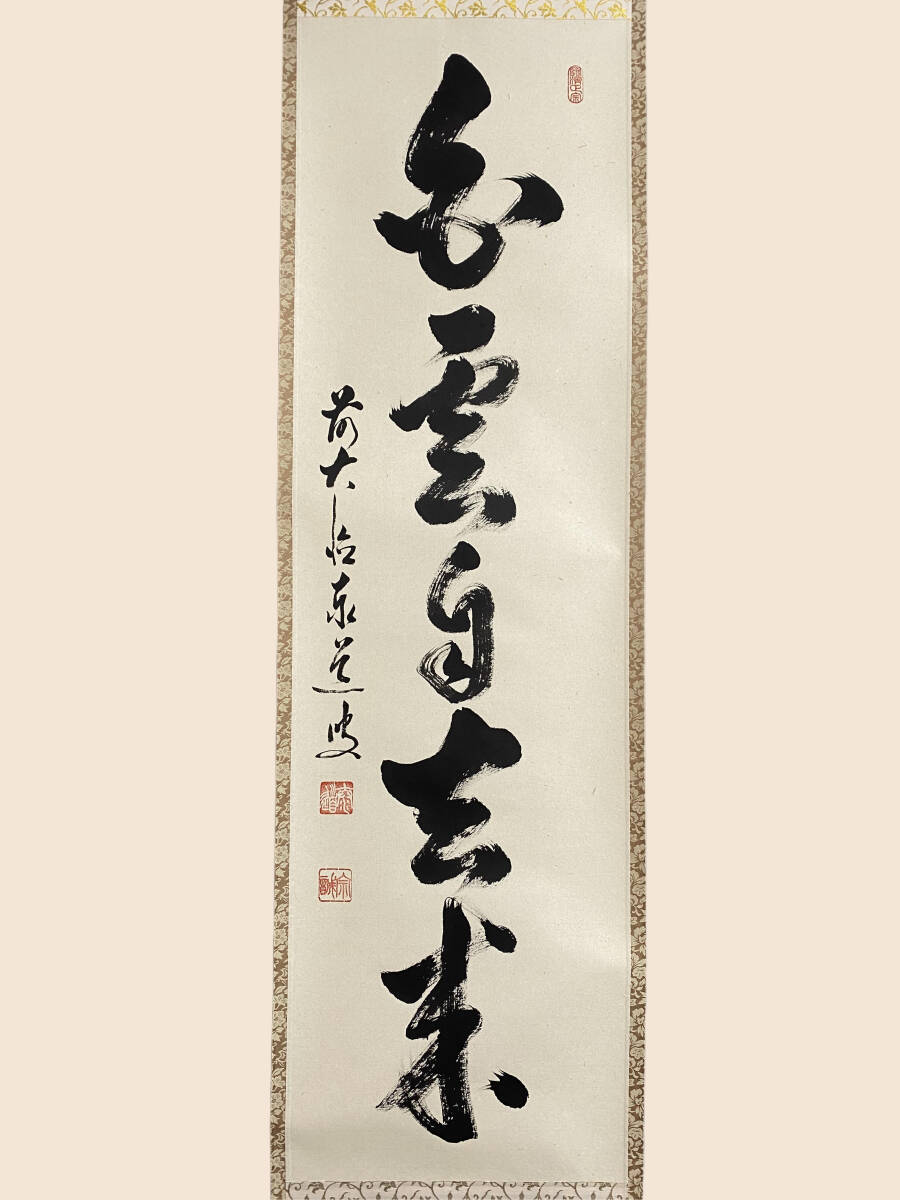 白雲自去来
前大徳泰道叟